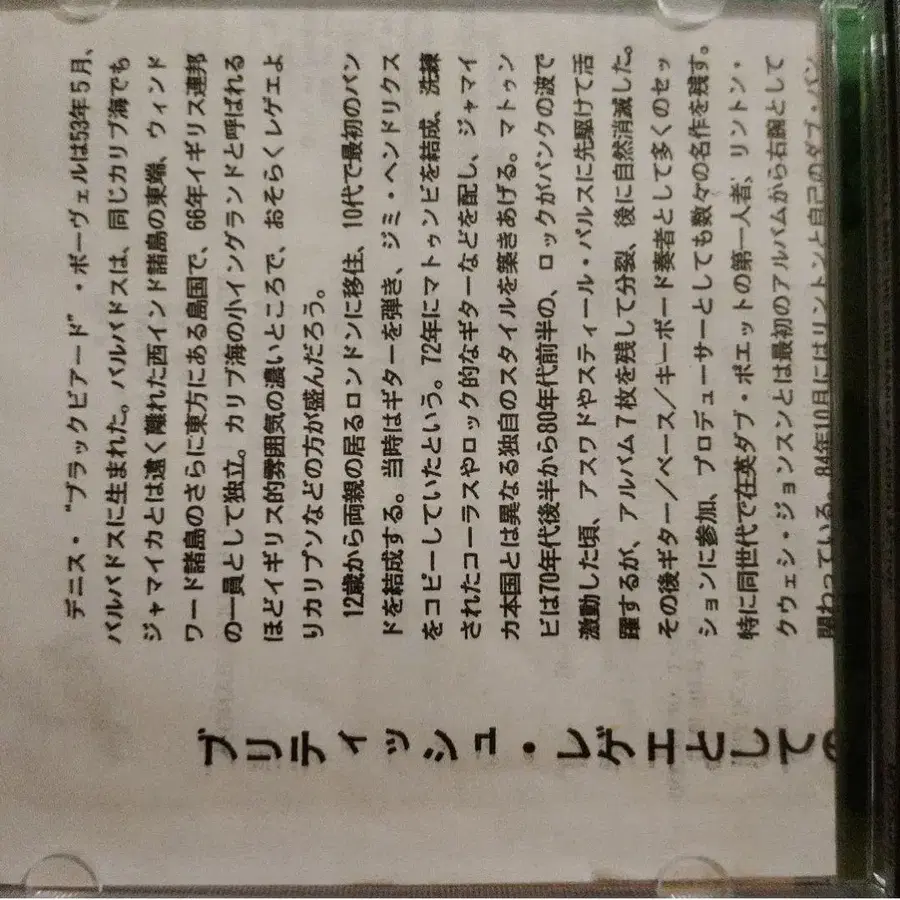 ブリティッシュ・レゲエとしての
デニス・“ブラックビアード”・ボーヴェルは53年5月、
バルバドスに生まれた。バルバドスは、同じカリブ海でも
ジャマイカとは遠く離れた西インド諸島の東端、ウィンド
ワード諸島のさらに東方にある島国で、66年イギリス連邦
の一員として独立。カリブ海の小イングランドと呼ばれる
ほどイギリス的雰囲気の濃いところで、おそらくレゲエよ
りカリプソなどの方が盛んだろう。
12歳から両親の居るロンドンに移住、10代で最初のバン
ドを結成する。当時はギターを弾き、ジミ・ヘンドリクス
をコピーしていたという。72年にマトゥンビを結成、洗練
されたコーラスやロック的なギターなどを配し、ジャマイ
カ本国とは異なる独自のスタイルを築きあげる。マトゥン
ビは70年代後半から80年代前半の、ロックがパンクの波で
激動した頃、アスワドやスティール・パルスに先駆けて活
躍するが、アルバム7枚を残して分裂、後に自然消滅した。
その後ギター／ベース／キーボード奏者として多くのセッ
ションに参加、プロデューサーとしても数々の名作を残す。
特に同世代で在英ダブ・ポエットの第一人者、リントン・
クウェシ・ジョンスンとは最初のアルバムから右腕として
関わっている。84年10月にはリントンと自己のダブ・バン